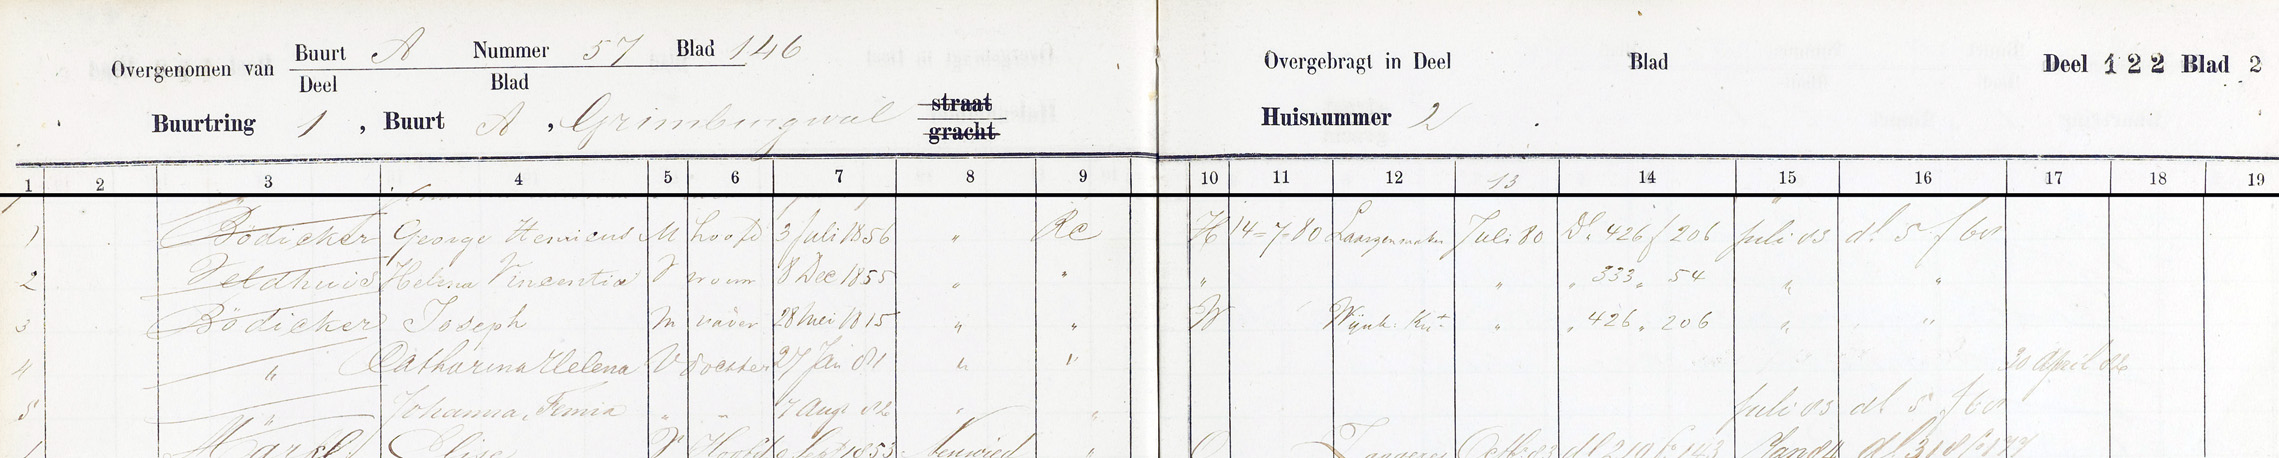 Overgenomen van Buurt A Nummer 57 Blad 146
Deel Blad
Buurtring 1, Buurt A, Grimburgwal straat gracht
Overgebragt in Deel Blad Deel 122 Blad 2
Huisnummer 2
1 2 3 4 5 6 7 8 9 10 11 12 13 14 15 16 17 18 19
1 Bödicker George Henricus M hoofd 3 Juli 1856 " Rc H 14-7-80 Juli 80 Dl. 426 f 206 Juli 83 dl 5 f 60
2 Veldhuis Helena Vincentia V vrouw 8 Dec 1855 " " " " " 333 " 54 " "
3 Bödicker Joseph M vader 28 Mei 1815 " " W " " 426 " 206 " "
4 " Catharina Helena V dochter 27 Jan 81 " " 30 April 82
5 " Johanna Femia " " 7 Aug 82 " " Juli 83 dl 5 f 60
1 Elise V Hoofd Sept 1853 Neuwied " O Octb 83 dl 210 fo 143 dl 318 fo 177